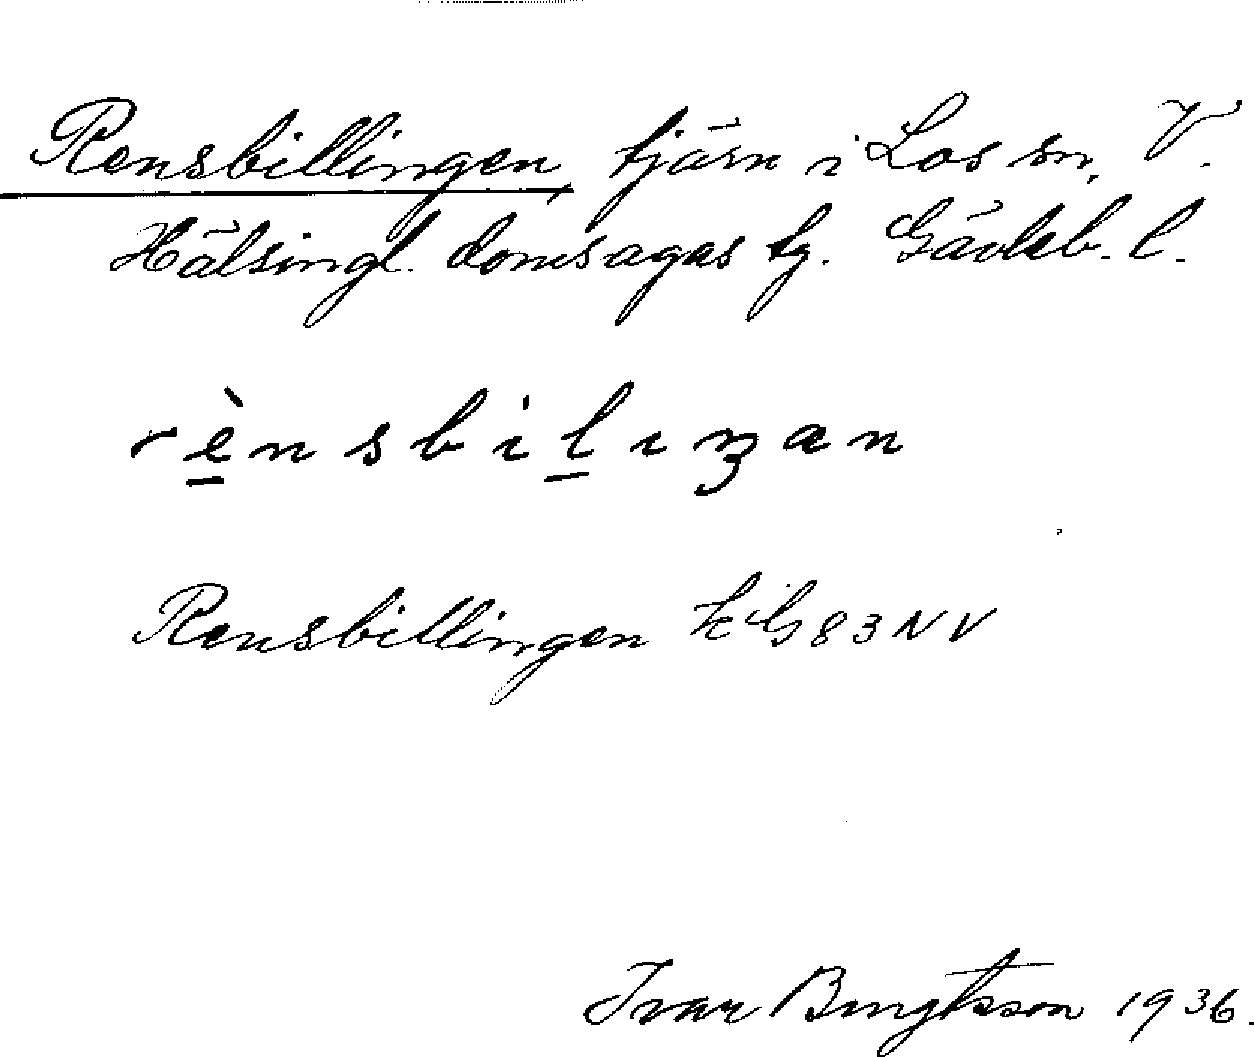 Rensbillingen, tjärn i Los sn, V.
Hälsingl. domsagas tg. Gävleb. l.
rè̱nsbiḻıŋan
Rensbillingen kG83NV
Ivar Bengtsson 1936.